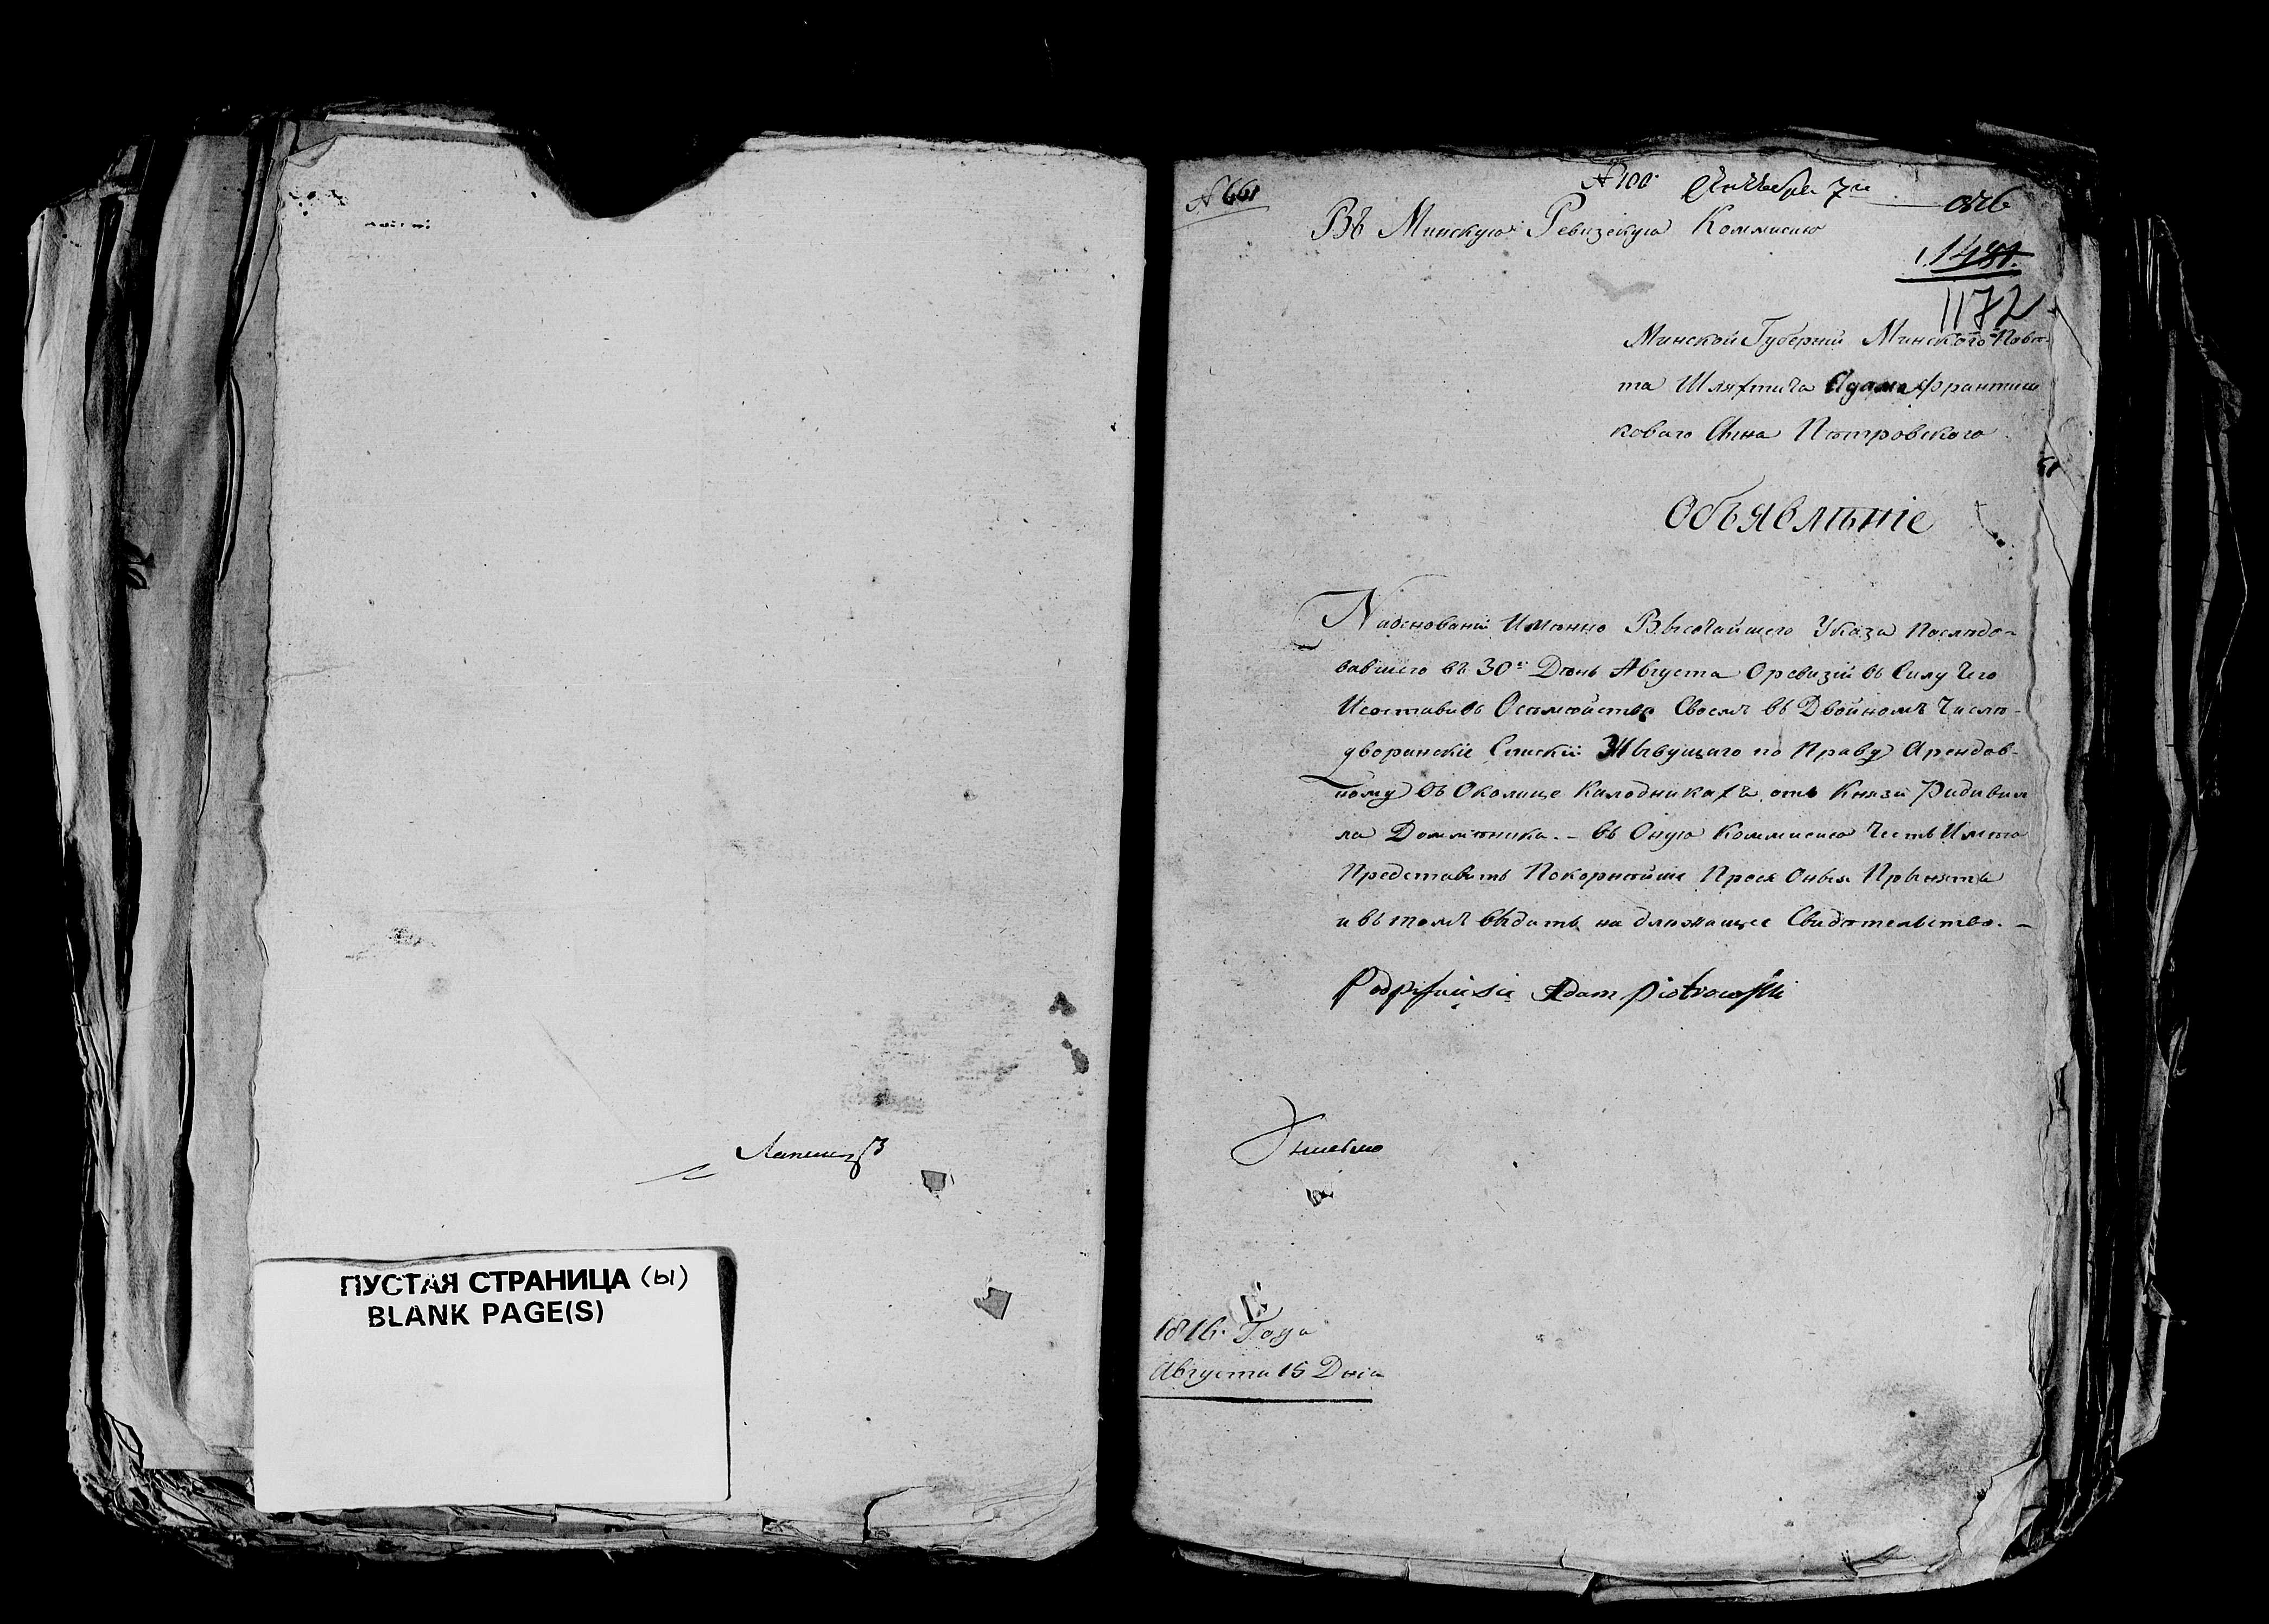 Лапицкий
ПУСТАЯ СТРАНИЦА (ы)
BLANK PAGE(S)
№ 661
№ 100. 7го
Въ Минскую Ревизскую Коммисию
1481.
1172
Минской Губерніи Минского Пове-
та Шляхтича Адама Франтиш
коваго Сына Пѣтровского
ОбъявлѣнІе
На основаніи Имѣнно Высочайшего Указа Послѣдо-
вавшего въ 30й Дѣнь Августа О ревизіи въ Силу чего
И составивъ О сѣмѣйстве Своемъ въ Двойномъ Числѣ-
дворянскіе Списки Жывущаго по Праву Арендов-
ному въ Околице Калодникахъ отъ Князя Радивил
ла Доминѣника. - въ Оную Коммисию Честь Имѣю
Представить Покорнѣйше Прося Оныя Прынять
и въ томъ выдать на длежащее Свидѣтельство. -
Podpisuię się Adam Piotrowski
1816. Года
Августа 15 Дніа